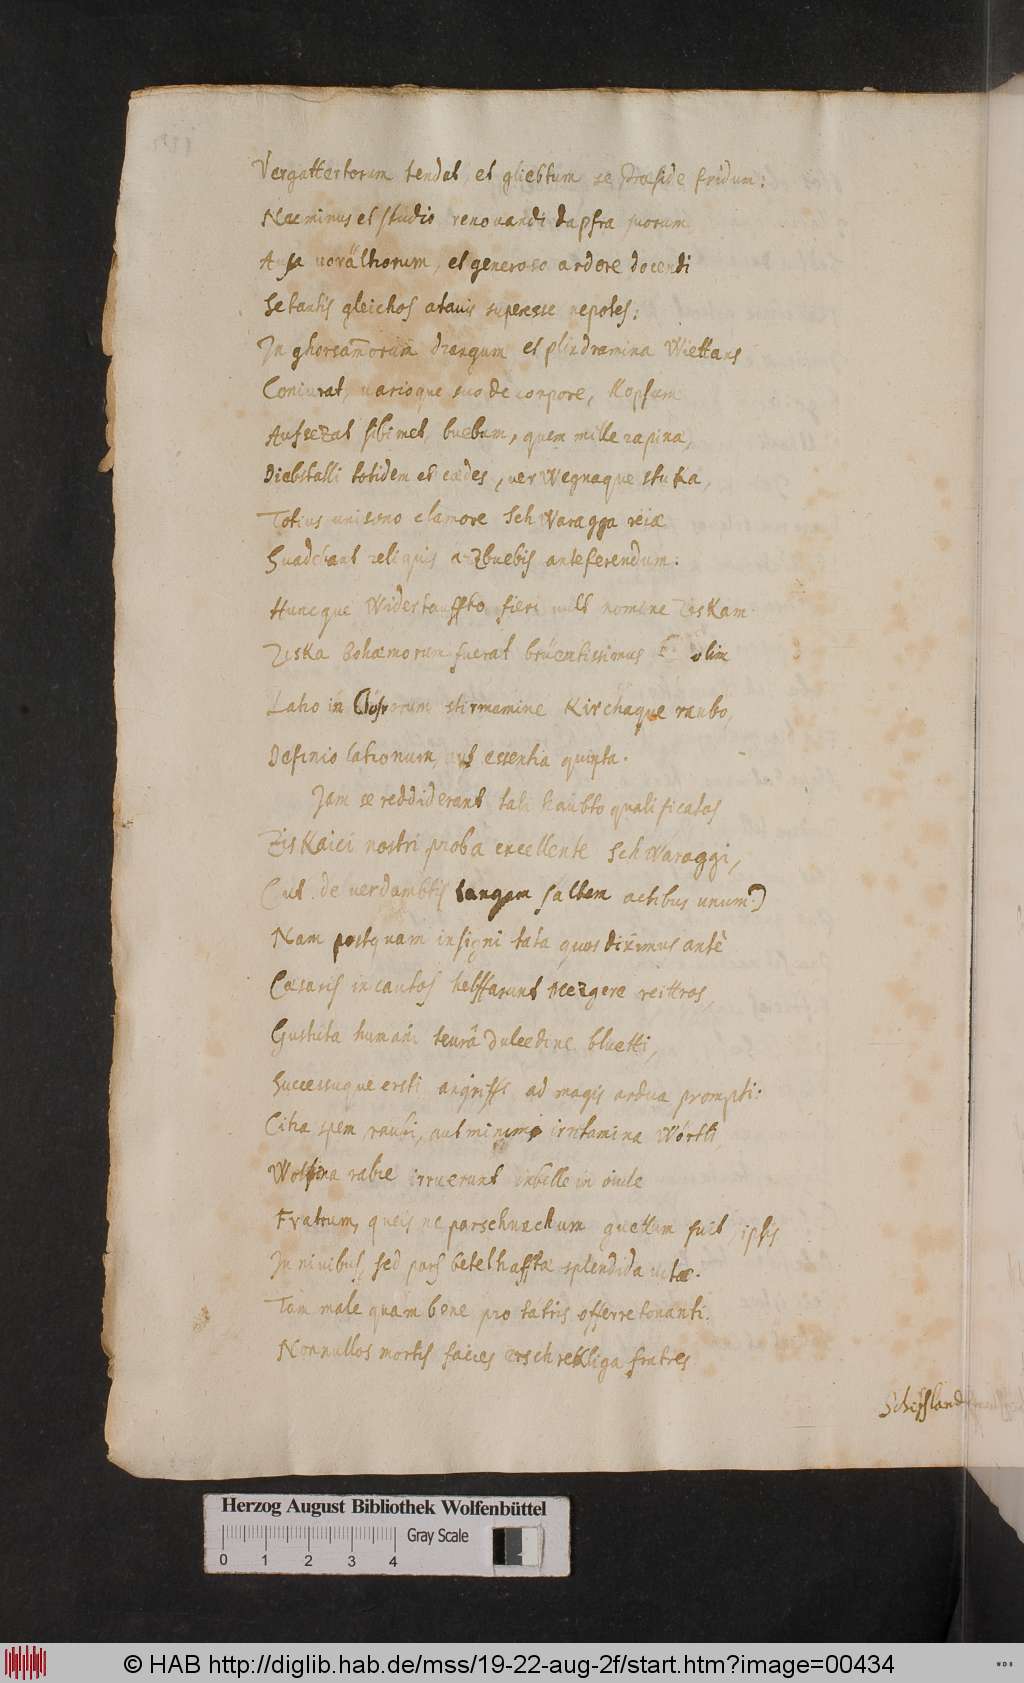 Vergattertorum tendat, et gliebtum se Præside fridum:
Nec minus et studio renouandi dapfra suorum
Ausa uorälthorum, et generoso ardore docendi
Se tantis gleichos atauis superesse nepotes:
In ghorsamorum drangum et plindramina Wiettans
Coniurat, uarioque suo de corpore, Kopfum
Aufsezat sibimet, buebum, quem mille rapinæ,
Diebstalli totidem et cædes, uer Wegnaque stuka,
Totius unisono clamore SchWaragga reiæ
Suadebant reliquis ärzbuebis anteferendum:
Huncque Widestauffto fieri uult nomine Ziskam
Ziska Bohæmorum fuerat brüentissimus olim
Latro in Closrorum stirmamine Kirchaque raubo,
Definio latronum, aut essentia quinta.
Jam se reddiderant tali haubto qualificatos
ZisKaici nostri proba excellente SchWaraggi,
(Ut de uerdambtis tangam saltem actibus unum.)
Nam postquam insigni tata quos diximus antè
Cæsaris incautos helffarunt Mezgere reittros,
Gustata humani teurâ dulcedine bluetti,
Successuque ersti angriffi ad magis ardua prompti:
Citra spem raubi, aut minima irritamina Wörtti
Wolfina rabie irruerunt imbelle in ouile
Fratrum, queis ne parschnackum guettum fuit ipsis
In niuibus, sed pars betelhafftæ splendida uitæ.
Tam male quam bene pro tatris offerre tonanti.
Nonnullos mortis facies erschrekliga fratres
Schifsland
Herzog August Bibliothek Wolfenbüttel
Gray Scale
0 1 2 3 4
© HAB http://diglib.hab.de/mss/19-22-aug-2f/start.htm?image=00434